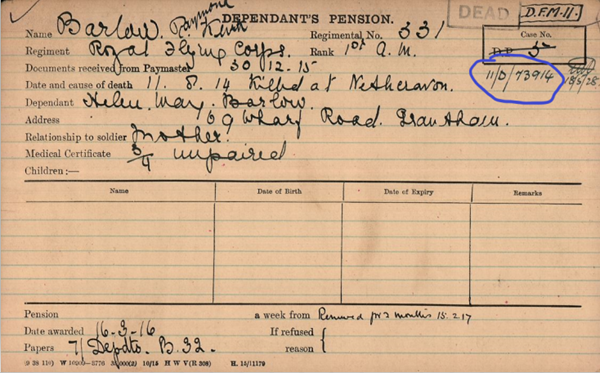 DEPENDANT'S PENSION.
DEAD
D.F.M-11.
Name Barlow. R. Raymond Kenk
Regimental No. 331
Case No.
Regiment Royal Flying Corps.
Rank 1st A.M.
DP 5
Documents received from Paymaster 30-12-15
Date and cause of death 11. 8. 14 Killed at Netheravon.
11/D/73914
18/5/28.
Dependant Helen Mary Barlow.
Address 169 Wharf Road. Grantham.
Relationship to soldier Mother.
Medical Certificate 3/4 unpaired
Children:—
Name Date of Birth Date of Expiry Remarks
Pension a week from Renewed for 2 months 15.2.17
Date awarded 16-3-16 If refused
Papers 71 Depdts. B.32. reason
(D 28 110) W 16909—3776 (2) 10/15 H W V(R 308) H. 15/11179